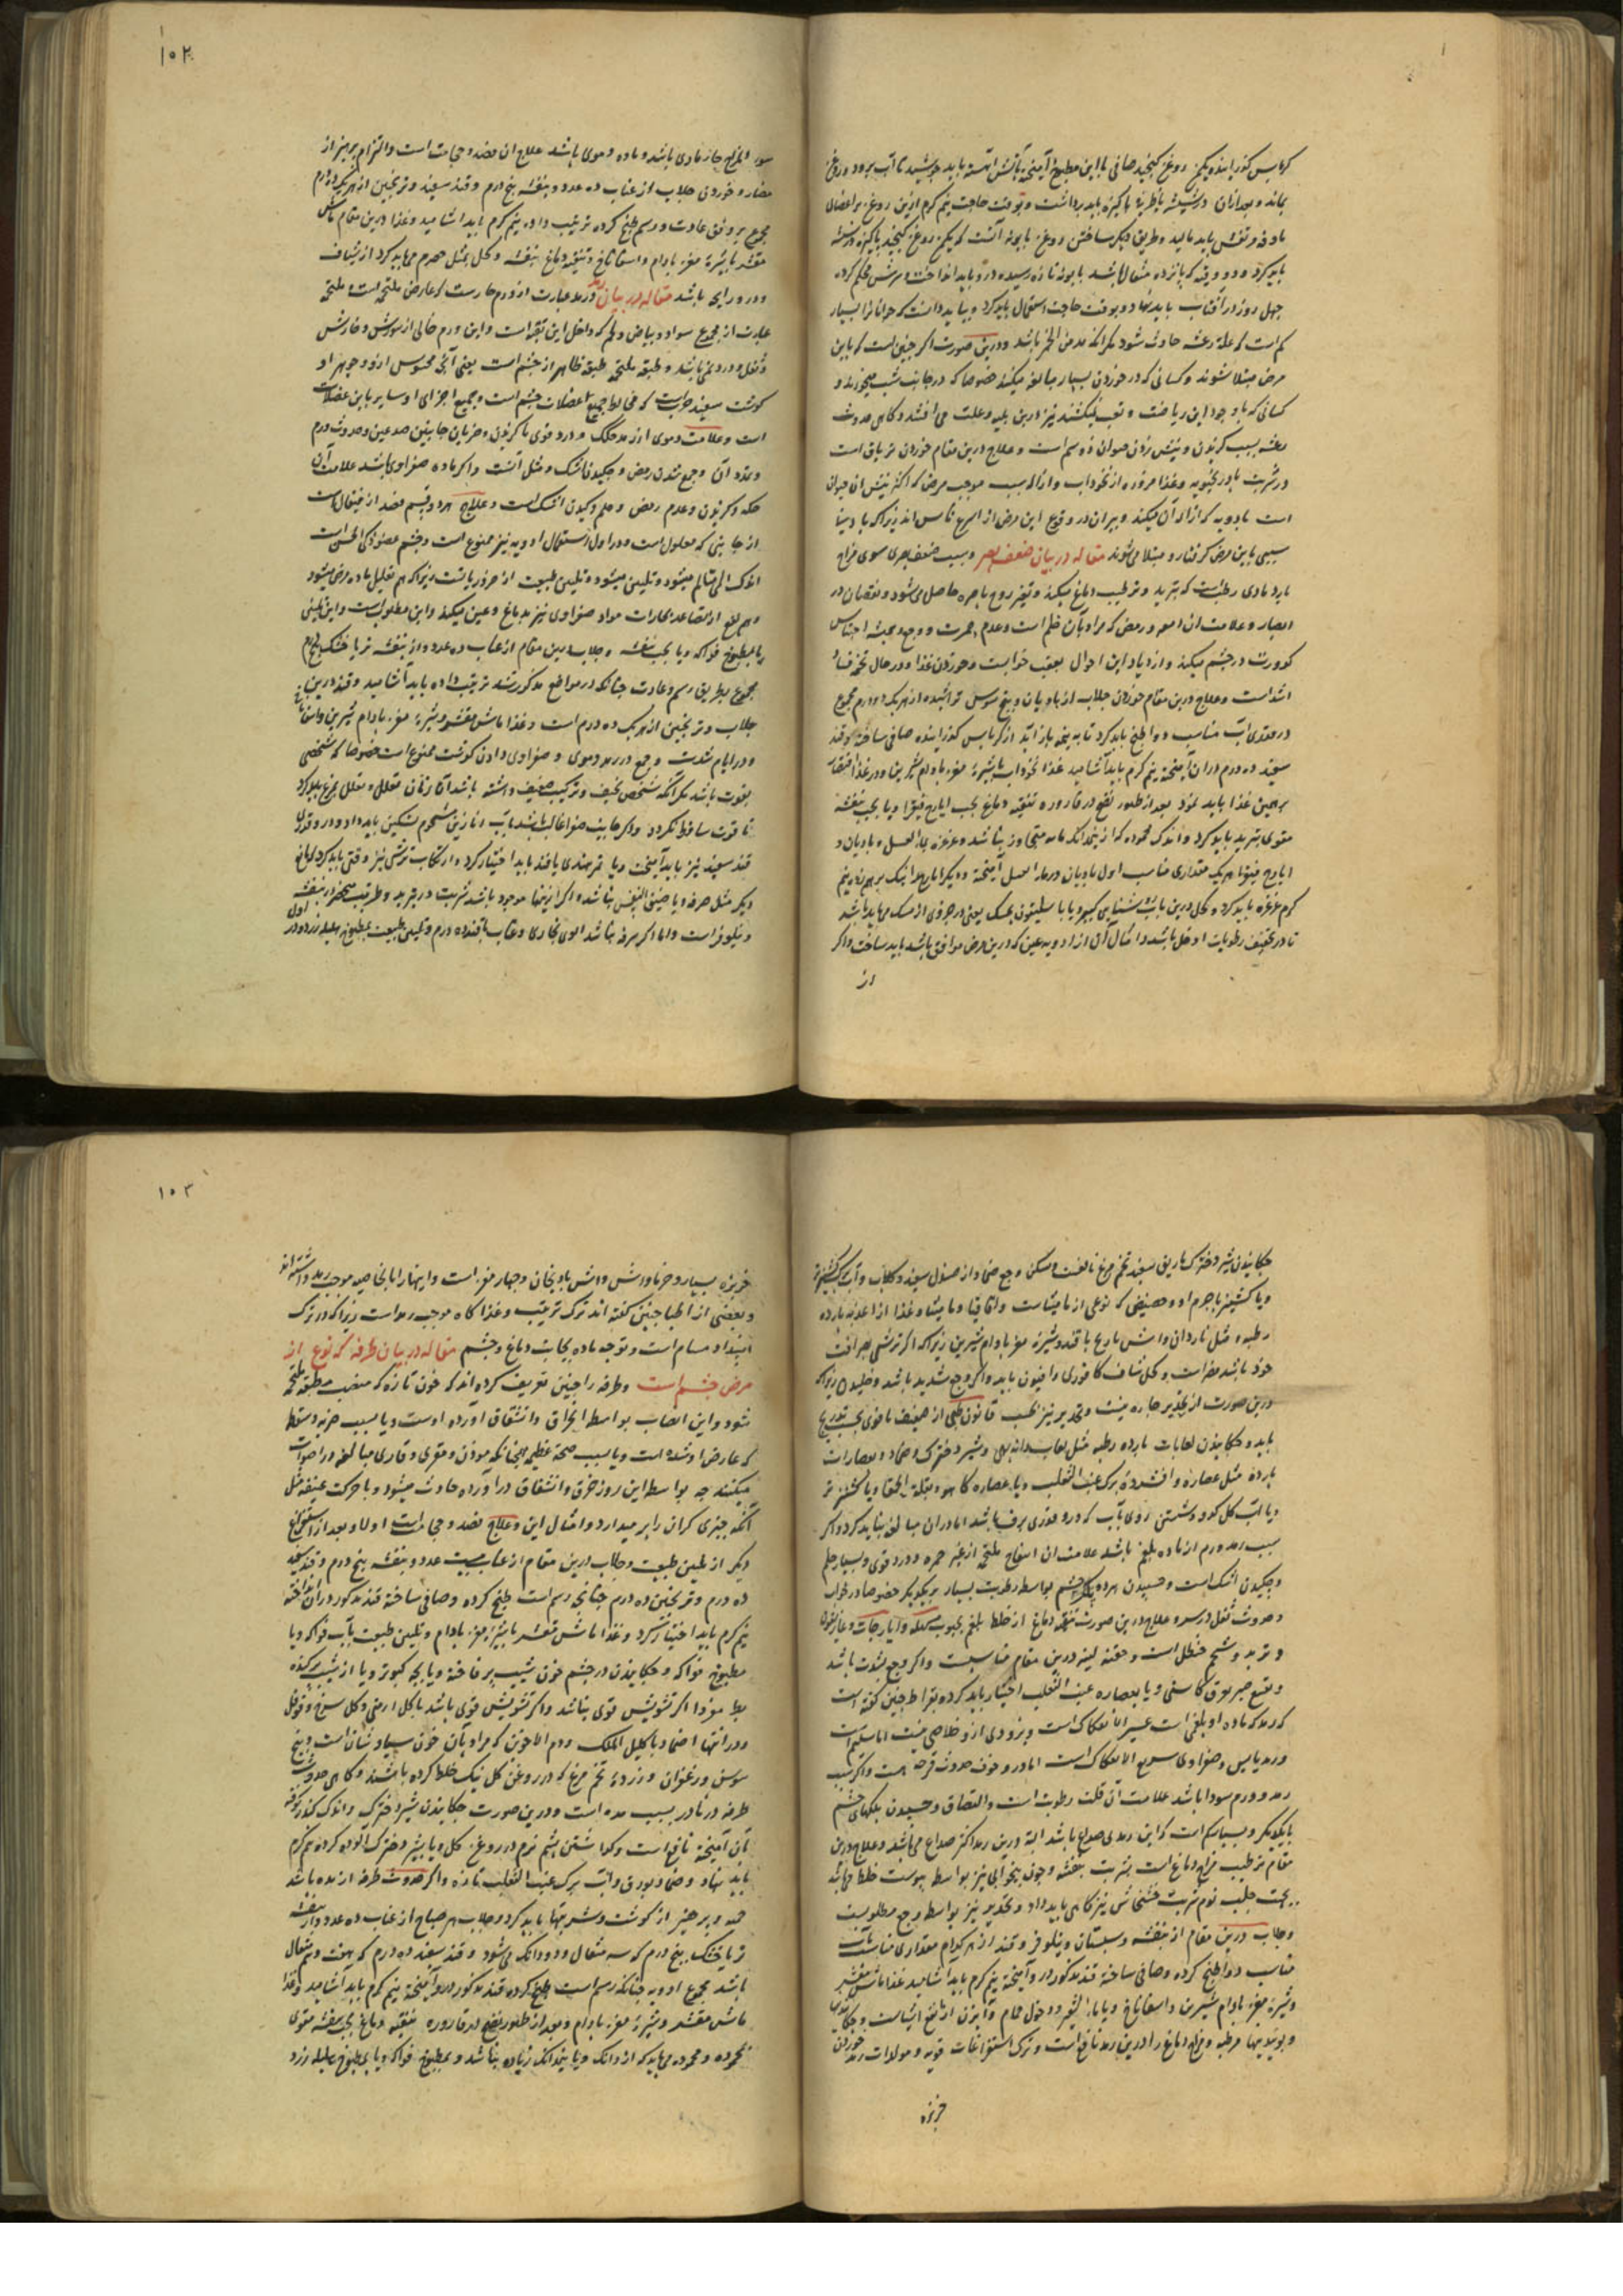 کرباس گذرانیده یکمن روغن کنجید صافی با این مطبوخ آمیخته بآتش آهسته باید جوشید تا آب برود و روغن
بماند و بعد ازان در شیشه یا ظرف پاکیزه باید برداشت و بوقت حاجت نیم گرم ازین روغن بر اعضای
ماوفه و نفس باید مالید و طریق دیگر ساختن روغن بابونه آنست که یکمن روغن کنجید پاکیزه در شیشه
باید کرد و دو وقیه که پانزده مثقال باشد بابونه تازه رسیده درو باید انداخت و سرش محکم کرده
چهل روز در آفتاب باید نهاد و بوقت حاجت استعمال باید کرد و بباید دانست که جوانانرا بسیار
کم است که علة رعشه حادث شود مگر آنکه مدمن الخمر باشد و درین صورت اکثر چنین است که باین
مرض مبتلا شوند و کسانی که در خوردن بسیار مبالغه میکنند خصوصا که در جانب شب میخورند و
کسانی که با وجود این ریاضت و تعب نمیکشند نیز درین بلیه و علت می افتند و گاهی حدوث
رعشه بسبب گزیدن و نیش زدن حیوان ذو سم است و علاج درین مقام خوردن تریاق است
و شربت بادرنجبویه و غذا مزوره از نخوداب و ازاله سبب موجب مرض که اکثر نیش آن حیوان
است بادویه که ازاله آن میکند و پیران در وقوع این مرض از اسرع ناس اند زیرا که با دنیا
سببی باین مرض گرفتار و مبتلا می شوند مقاله در بیان ضعف بصر و سبب ضعف بصر ی سوی مزاج
بارد مادی رطب است که تبرید و ترطیب دماغ میکند و تغیر روح باصره حاصل می شود و نقصان در
ابصار و علامت آن دمعه و رمص که مراد بآن خلم است و عدم حمرت و وجع و همیشه احساس
کدورت در چشم میکند و ازدیاد این احوال بعقب خوابست و خوردن غذا و در حال تخمه فساد
اشد است و علاج درین مقام خوردن جلاب از بادیان و بیخ سوسن تراشیده از هر یک دو درم مجموع
در مقدری آب مناسب دوا طبخ باید کرد تا به نیمه باز آید از کرباس گذرانیده صافی ساخته و قند
سفید ده درم دران آمیخته نیم گرم باید آشامید غذا نخوداب باشیره مغز بادام شیرین و در غذا اقتصار
برهمین غذا باید نمود بعد از ظهور نضج در قاروره تنقیه دماغ بحب ایارج فیقرا و یا بحب بنفشه
مقوی بتربد باید کرد و اندک محموده که از نیم دانک متجاوز نباشد و غرغره بماء العسل و بادیان و
ایارج فیقرا هر یک مقداری مناسب اول بادیان در ماء العسل آمیخته و دیگر ایارج بر هم زده نیم
گرم غرغره باید کرد و کحل درین باب روشنایی کبیر و یا باسلیقون بمسک یعنی در جزوی از مسک می باید باشد
تا در تجفیف رطوبات ادخل باشد و امثال آن از ادویه عین که درین مرض موافق باشد باید ساخت و اگر
از
۱۰۲
سوء المزاج حار مادی باشد و ماده دموی باشد علاج آن فصد و حجامت است و التزام پرهیز از
مضار و خوردن جلاب از عناب ده عدد و بنفشه پنج درم و قند سفید و ترنجبین از هر یک ده درم
مجموع بر وفق عادت و رسم طبخ کرده ترتیب داده نیم گرم باید آشامید و غذا درین مقام ماش
مقشر باشیره مغز بادام و اسفاناخ و تنقیه دماغ بنفشه و کحل بمثل حصرم می باید کرد از شیاف
وردورابجه باشد مقاله در بیان رمد و رمد عبارت از ورم حار است که عارض ملتحمه است و ملتحمه
عبارت از مجموع سواد و بیاض و لحم که داخل این بقعه است و این ورم خالی از سوزش و خارش
و ثقل و درد نمی باشد و طبقه ملتحمه طبقه ظاهر از چشم است یعنی آنچه محسوس از و جوهر او
گوشت سفید چرب است که مخالط جمیع عضلات چشم است و جمیع اجزای او سایر باین عضلات
است و علامت دموی از رمد حکک و درد قوی یا گزیدن و ضربان جانبین صدغین و حدوث ورم
و تمدد آن و جمع شدن رمص و چکیدن اشک و مثل آنست و اگر ماده صفراوی باشد علامت آن
حکه و گزیدن و عدم رمص و خلم و چکیدن اشک است و علاج هر دو قسم فصد از قیفال است
از جانبی که معلول است و در اول استعمال ادویه نیز ممنوع است و چشم عضو ذکی الحس است
باندک المی متالم میشود و تلیین میشود و تلیین طبیعت از ضروریات است زیرا که هم تقلیل ماده مرض میشود
و هم مانع از تصاعد بخارات مواد صفراوی نیز بدماغ و عین میکند و این مطلوب است و این تلیین
یا بمطبوخ فواکه و یا بحب بنفشه و جلاب درین مقام از عناب ده عدد و از بنفشه تر یا خشک پنج درم
مجموع بطریق رسم و عادت چنانکه در مواضع مذکور شد ترتیب داده باید آشامید و قند درین
جلاب و ترنجبین از هر یک ده درم است و غذا ماش مقشر و شیره مغز بادام شیرین و اسفاناخ
و در ایام شدت وجع در رمد دموی و صفراوی دادن گوشت ممنوع است خصوصا که شخص
بقوت باشد مگر آنکه شخص نحیف و ترکیب ضعیف داشته باشد آن زمان
تا قوت ساقط نگردد و اگر جانب صفرا غالب باشد بآب انارین شحوم تسکین باید داد و در و قدری
قند سفید نیز باید آمیخت و یا تمر هندی با قند باید اختیار کرد و ارتکاب ترشی نیز وقتی باید کرد که مانع
دیگر مثل سرفه و یا ضیق النفس نباشد و اگر اینها موجود باشد شربت در تبرید و ترطیب منحصر در بنفشه
و نیلوفر است و اما اگر سرفه نباشد آلوی بخاری و عناب باقند ده درم و تلیین طبیعت بمطبوخ هلیله زرد و در
اول
چکانیدن شیر دخترک باریق سفیده تخم مرغ نافعست و مسکن وجع ضماد از صندل سفید و گلاب و آب برگ گشنیز تر
و یا گشنیز باجرم او و حضیضی که نوعی از مامیثاست و اقاقیا و مامیثا و غذا از اغذیه بارده
رطبه و مثل ناردان و آش باریج باقند و شیره مغز بادام شیرین زیرا که اگر ترشی بصرافت
خود باشد مضر است و کحل شاف کافوری و افیون باید و اگر وجع شدید باشد
درین صورت از تخدیر چاره نیست و تخدیر نیز بحسب قانون طبی از ضعیف تا قوی بحسب تدریج
باید و چکانیدن لعابات بارده رطبه مثل لعاب دانه بهی و شیر دخترک و ضماد و بعصارات
بارده مثل عصاره و افشرده برگ عنب الثعلب و یا عصاره کاهو و بقلة الحمقا و یا گشنیز تر
و یا آب گل کدو و شستن روی بآب که درو قدری برف باشد اما دران مبالغه نباید کرد و اگر
سبب رمد ورم از ماده بلغم باشد علامت آن انتفاخ ملتحمه از غیر حمره و درد قوی و بسیار خلم
و چکیدن اشک است و چسپیدن هر دو پلک چشم بواسطه رطوبت بسیار بر یکدیگر خصوصا در خواب
و حدوث ثقل در سر و علاج درین صورت تنقیه دماغ از خلط بلغم بحبوب مسهله و ایارجات و غاریقون
و تربد و شحم حنظل است و حقنه لینه درین مقام مناسبست و اگر وجع بشدت باشد
وضع صبر بورق کاسنی و یا بعصاره عنب الثعلب اختیار باید کرد بقراط چنین گفته است
که رمد که ماده او بلغمی است عسیر الانفکاک است و بزودی ازو خلاصی نیست اما سلیم است
و رمد یابس و صفراوی سریع الانفکاک است اما درو خوف حدوث قرحه هست و اگر سبب
رمد ورم سودا باشد علامت آن قلت رطوبت است و التصاق و چسپیدن پلکهای چشم
بایکدیگر و بسیار کم است که این رمد بی صداع باشد البته درین رمد اکثر صداع می باشد و علاج درین
مقام ترطیب مزاج دماغ است بشربت بنفشه و چون بیخوابی نیز بواسطه یبوست خلط می باشد
بجهت جلب نوم شربت خشخاش نیز گاهی باید داد و تخدیر نیز بواسطه وجع مطلوبست
و جلاب درین مقام از بنفشه و سپستان و نیلوفر و قند از هر کدام مقداری مناسب باب
مناسب دوا طبخ کرده و صافی ساخته قند مذکور درو آمیخته نیم گرم باید آشامید غذا ماش مقشر
و شیره مغز بادام شیرین و اسفاناخ و یا ماء الشعیر و دخول حمام و آبزن از نافع اشیاست و چکانیدن
و بوییدنیها مرطبه مزاج دماغ را درین رمد نافع است و ترک استفراغات قویه و مولدات رمد خوردن
خربزه
۱۰۳
خربزه بسیار و خرما و آش و آش بادنجان و چهار مغز است و اینها را بالخاصیه موجب رمد داشته اند
و بعضی از اطبا چنین گفته اند ترک ترتیب و غذا گاه موجب رمد است زیرا که در ترک
انسداد مسام است و توجه ماده بجانب دماغ و چشم مقاله در بیان طرفه که نوع از
مرض چشم است و طرفه را چنین تعریف کرده اند که خون تازه که منصب بطبقه ملتحمه
شود و این انصباب بواسطه انخراق و انشقاق آورده اوست و یا بسبب ضربه و سقطه
که عارض او شده است و یا بسبب صیحه عظیمه همچنانکه موذن و مقری و قاری مبالغه در اصوات
میکنند چه بواسطه این روز خرق و انشقاق در آورده حادث میشود و یا حرکت عنیفه مثل
آنکه چیزی گران را بر میدارد و امثال این و علاج فصد و حجامت است اولا و بعد از استفراغ
دیگر از تلیین طبیعت و جلاب درین مقام از عناب بیست عدد و بنفشه پنج درم و قند سفید
ده درم و ترنجبین ده درم چنانچه رسم است طبخ کرده و صافی ساخته قند مذکور دران انداخته
نیم گرم باید اختیار کرد و غذا ماش مقشر باشیره مغز بادام و تلیین طبیعت بآب فواکه و یا
مطبوخ فواکه و چکانیدن در چشم خون شیب پر فاخته و یا بچه کبوتر و یا از شیب پر کنده
بط مفردا اگر تشویش قوی نباشد و اگر تشویش قوی باشد باگل ارمنی و گل سرخ و فوفل
و در انتها ضماد باکلیل الملک و دم الاخوین که مراد بآن خون سیاوشان است و بیخ
سوسن و زعفران و زرده تخم مرغ که در روغن گل نیک خلط کرده باشند و گاهی حدوث
طرفه در نادر بسبب مده است و درین صورت چکانیدن شیر دخترک و اندک کندر کوفته
بآن آمیخته نافع است و گذاشتن پشم نرم در روغن گل و یا بشیر دخترک آلوده کرده نیم گرم
باید نهاد و ضماد بورق و آب برگ عنب الثعلب تازه و اگر حدوث طرفه از مده باشد
حمیه و پرهیز از گوشت و شیرینیها باید کرد و جلاب هر صباح از عناب ده عدد و از بنفشه
تر یا خشک پنج درم که سه مثقال و دو دانک می شود و قند سفید ده درم که هفت و نیم مثقال
باشد مجموع ادویه چنانکه رسم است طبخ کرده قند مذکور درو آمیخته نیم گرم باید آشامید و غذا
ماش مقشر و شیره مغز بادام و بعد از ظهور نضج در قاروره تنقیه دماغ بحب بنفشه مقوی
بمحموده و محموده می باید که از دانک و یا نیم دانک زیاده نباشد و بمطبوخ فواکه و یا بمطبوخ هلیله زرد